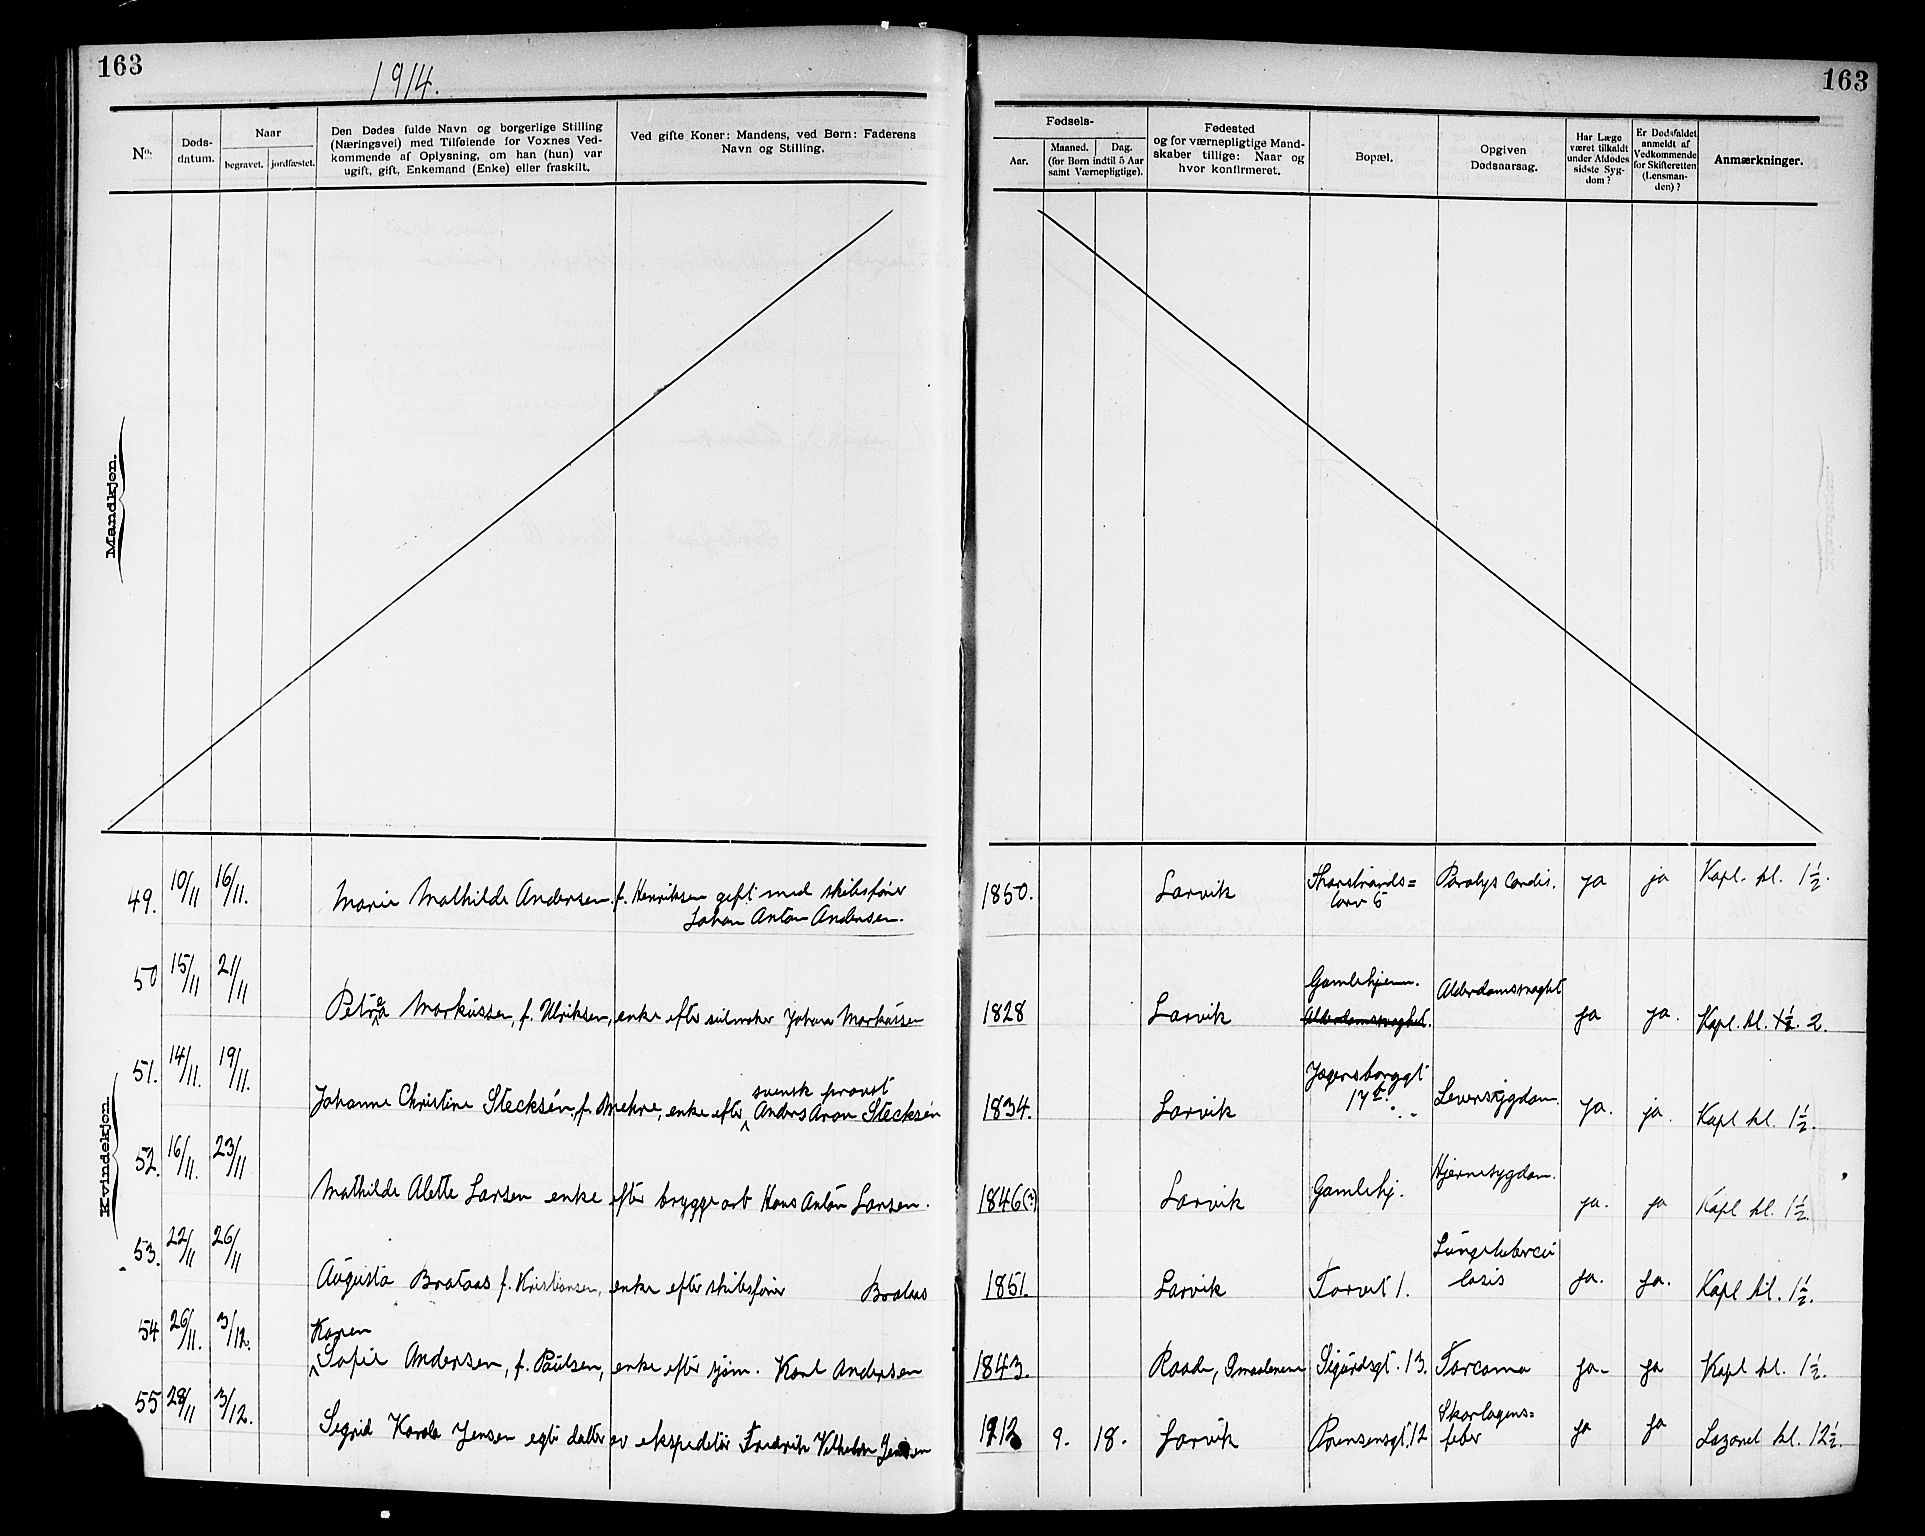 163
1914.
163
No.
Døds-
datum.
Naar
begravet.
jordfæstet.
Den Dødes fulde Navn og borgerlige Stilling
(Næringsvei) med Tilføiende for Voxnes Ved-
kommende af Oplysning, om han (hun) var
ugift, gift, Enkemand (Enke) eller fraskilt.
Ved gifte Koner: Mandens, ved Børn: Faderens
Navn og Stilling.
Fødsels-
Aar.
Maaned. Dag.
(for Børn indtil 5 Aar
samt Værnepligtige).
Fødested
og for værnepligtige Mand-
skaber tillige: Naar og
hvor konfirmeret.
Bopæl.
Opgiven
Dødsaarsag.
Har Læge
været tilkaldt
under Afdødes
sidste Syg-
dom?
Er Dødsfaldet
anmeldt af
Vedkommende
for Skifteretten
(Lensman-
den)?
Anmærkninger.
Mandkjøn.
Kvindekjøn.
49. 10/11 16/11. Marie Mathilde Andersen f. Henriksen gift med skibsfører
Johan Anton Andersen.
1850. Larvik
torv 6
ja ja Kapl. kl. 1½.
50 15/11 21/11 Petrea Markussen, f. Ulriksen, enke efter seilmaker Johan Markussen
1828 Larvik Gamlehjem.
Alderdomssvaghet.
Alderdomssvaghet
ja ja. Kapl. kl. 1½. 2.
51. 14/11. 19/11. Johanne Christine Stecksén, f. enke efter svensk provst Anders Aron Stecksén
1834. Larvik Jegersborggt
17
Leversygdom. ja. ja. Kapl kl. 1½.
52. 16/11. 23/11 Mathilde Alette Larsen enke efter bryggearb Hans Anton Larsen.
1846(?) Larvik Gamlehj. Hjernesygdom. ja. ja Kapl kl. 1½.
53. 22/11 26/11 Augusta Brataas f. Kristiansen, enke efter skibsfører Brataas
1851. Larvik Torvet 1. Lungetubercu
losis
ja. ja. Kapl kl. 1½.
54 26/11. 3/12. Karen Sofie Andersen, f. Paulsen, enke efter sjøm. Karl Andersen
1843. Raade, Smaalenene Sigurdsgt. 13. Sarcoma ja- ja Kapl kl. 1½.
55 28/11 3/12. Sigrid Karola Jensen egte datter av ekspeditør Fredrik Vilhelm Jensen
1912 9. 18. Larvik Prinsensgt. 12 Skarlagens=
feber
ja ja Lazaret kl. 12½.